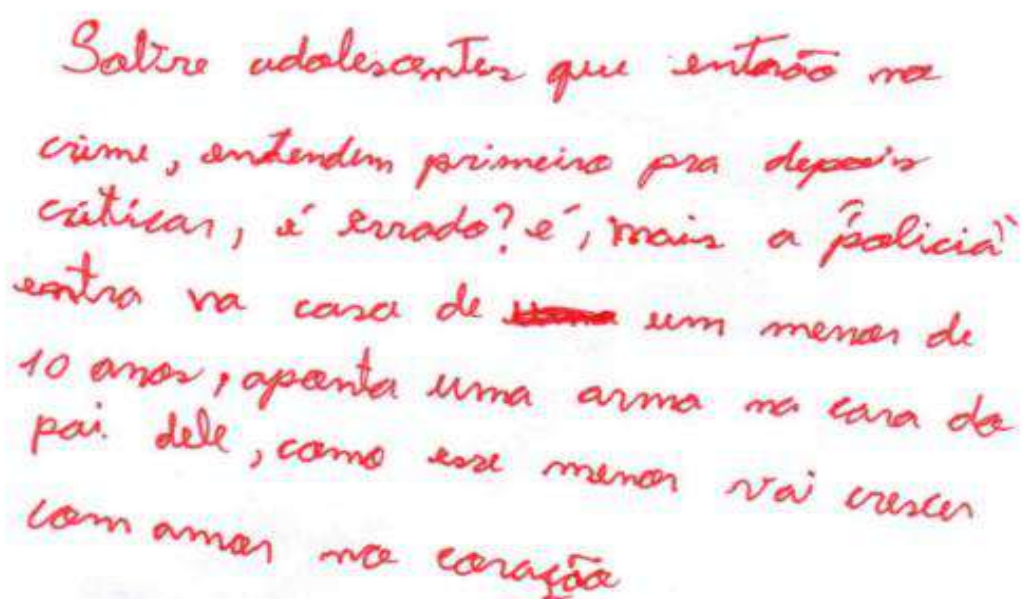 Sobre adolescentes que entrão no
crime, entendem primeiro pra depois
criticar, é errado? é, mais a "policia"
entra na casa de um menor de
10 anos, aponta uma arma na cara do
pai dele, como esse menor vai crescer
com amor no coração